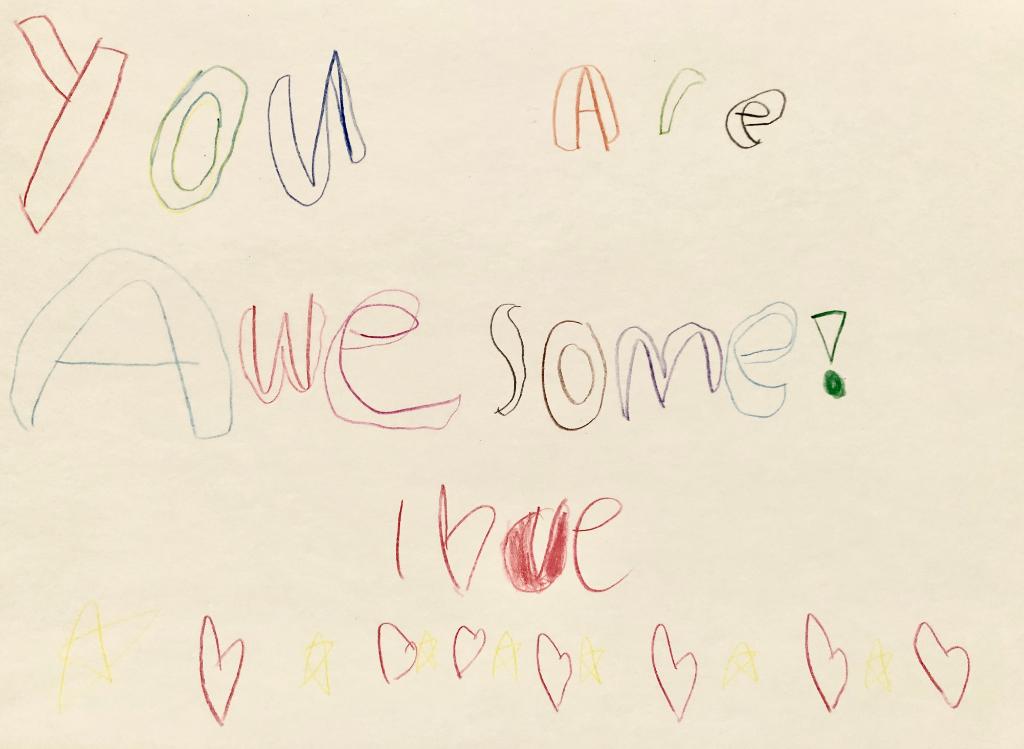 You Are
Awesome!
I love